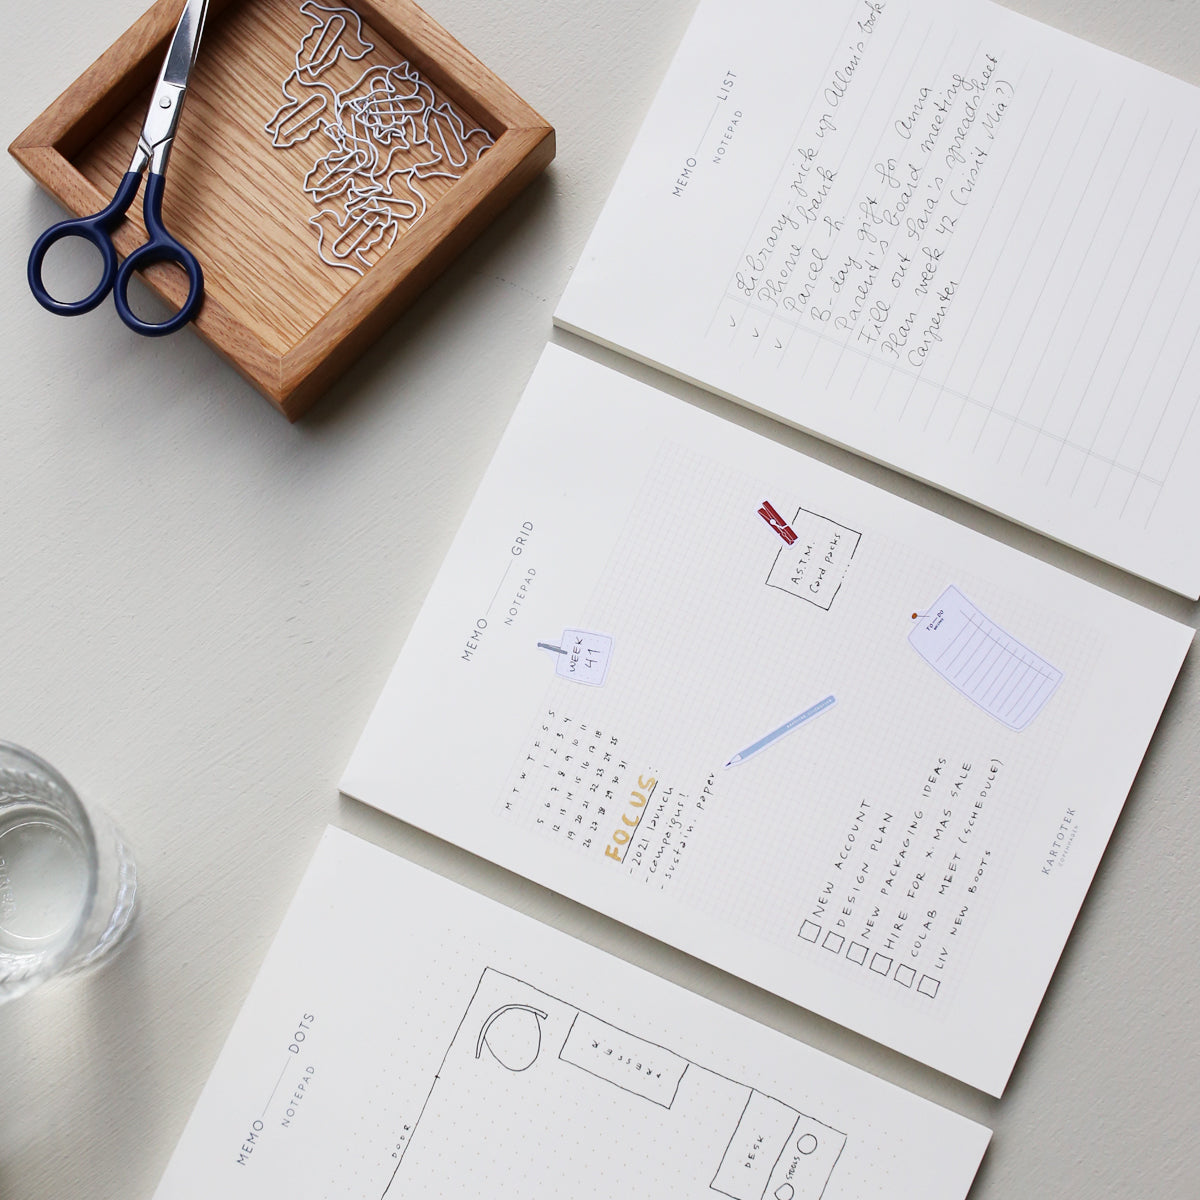 MEMO LIST
NOTEPAD
Library: pick up Allan's book
Phone bank
Parcel h.
B-day gift for Anna
Parent's board meeting
Fill out Sara's spreadsheet
Plan week 42 (visit Mia?)
Carpenter
MEMO GRID
NOTEPAD
WEEK
41
A.S.T.M.
Card packs
....
TO-DO
M T W T F S S
1 2 3 4
5 6 7 8 9 10 11
12 13 14 15 16 17 18
19 20 21 22 23 24 25
26 27 28 29 30 31
FOCUS:
- 2021 launch
- campaigns!
- sustain. paper
NEW ACCOUNT
DESIGN PLAN
NEW PACKAGING IDEAS
HIRE FOR X-MAS SALE
COLAB MEET (SCHEDULE)
LIV NEW BOOTS
KARTOTEK
COPENHAGEN
MEMO DOTS
NOTEPAD
DOOR
DRESSER
DESK
STOOLS